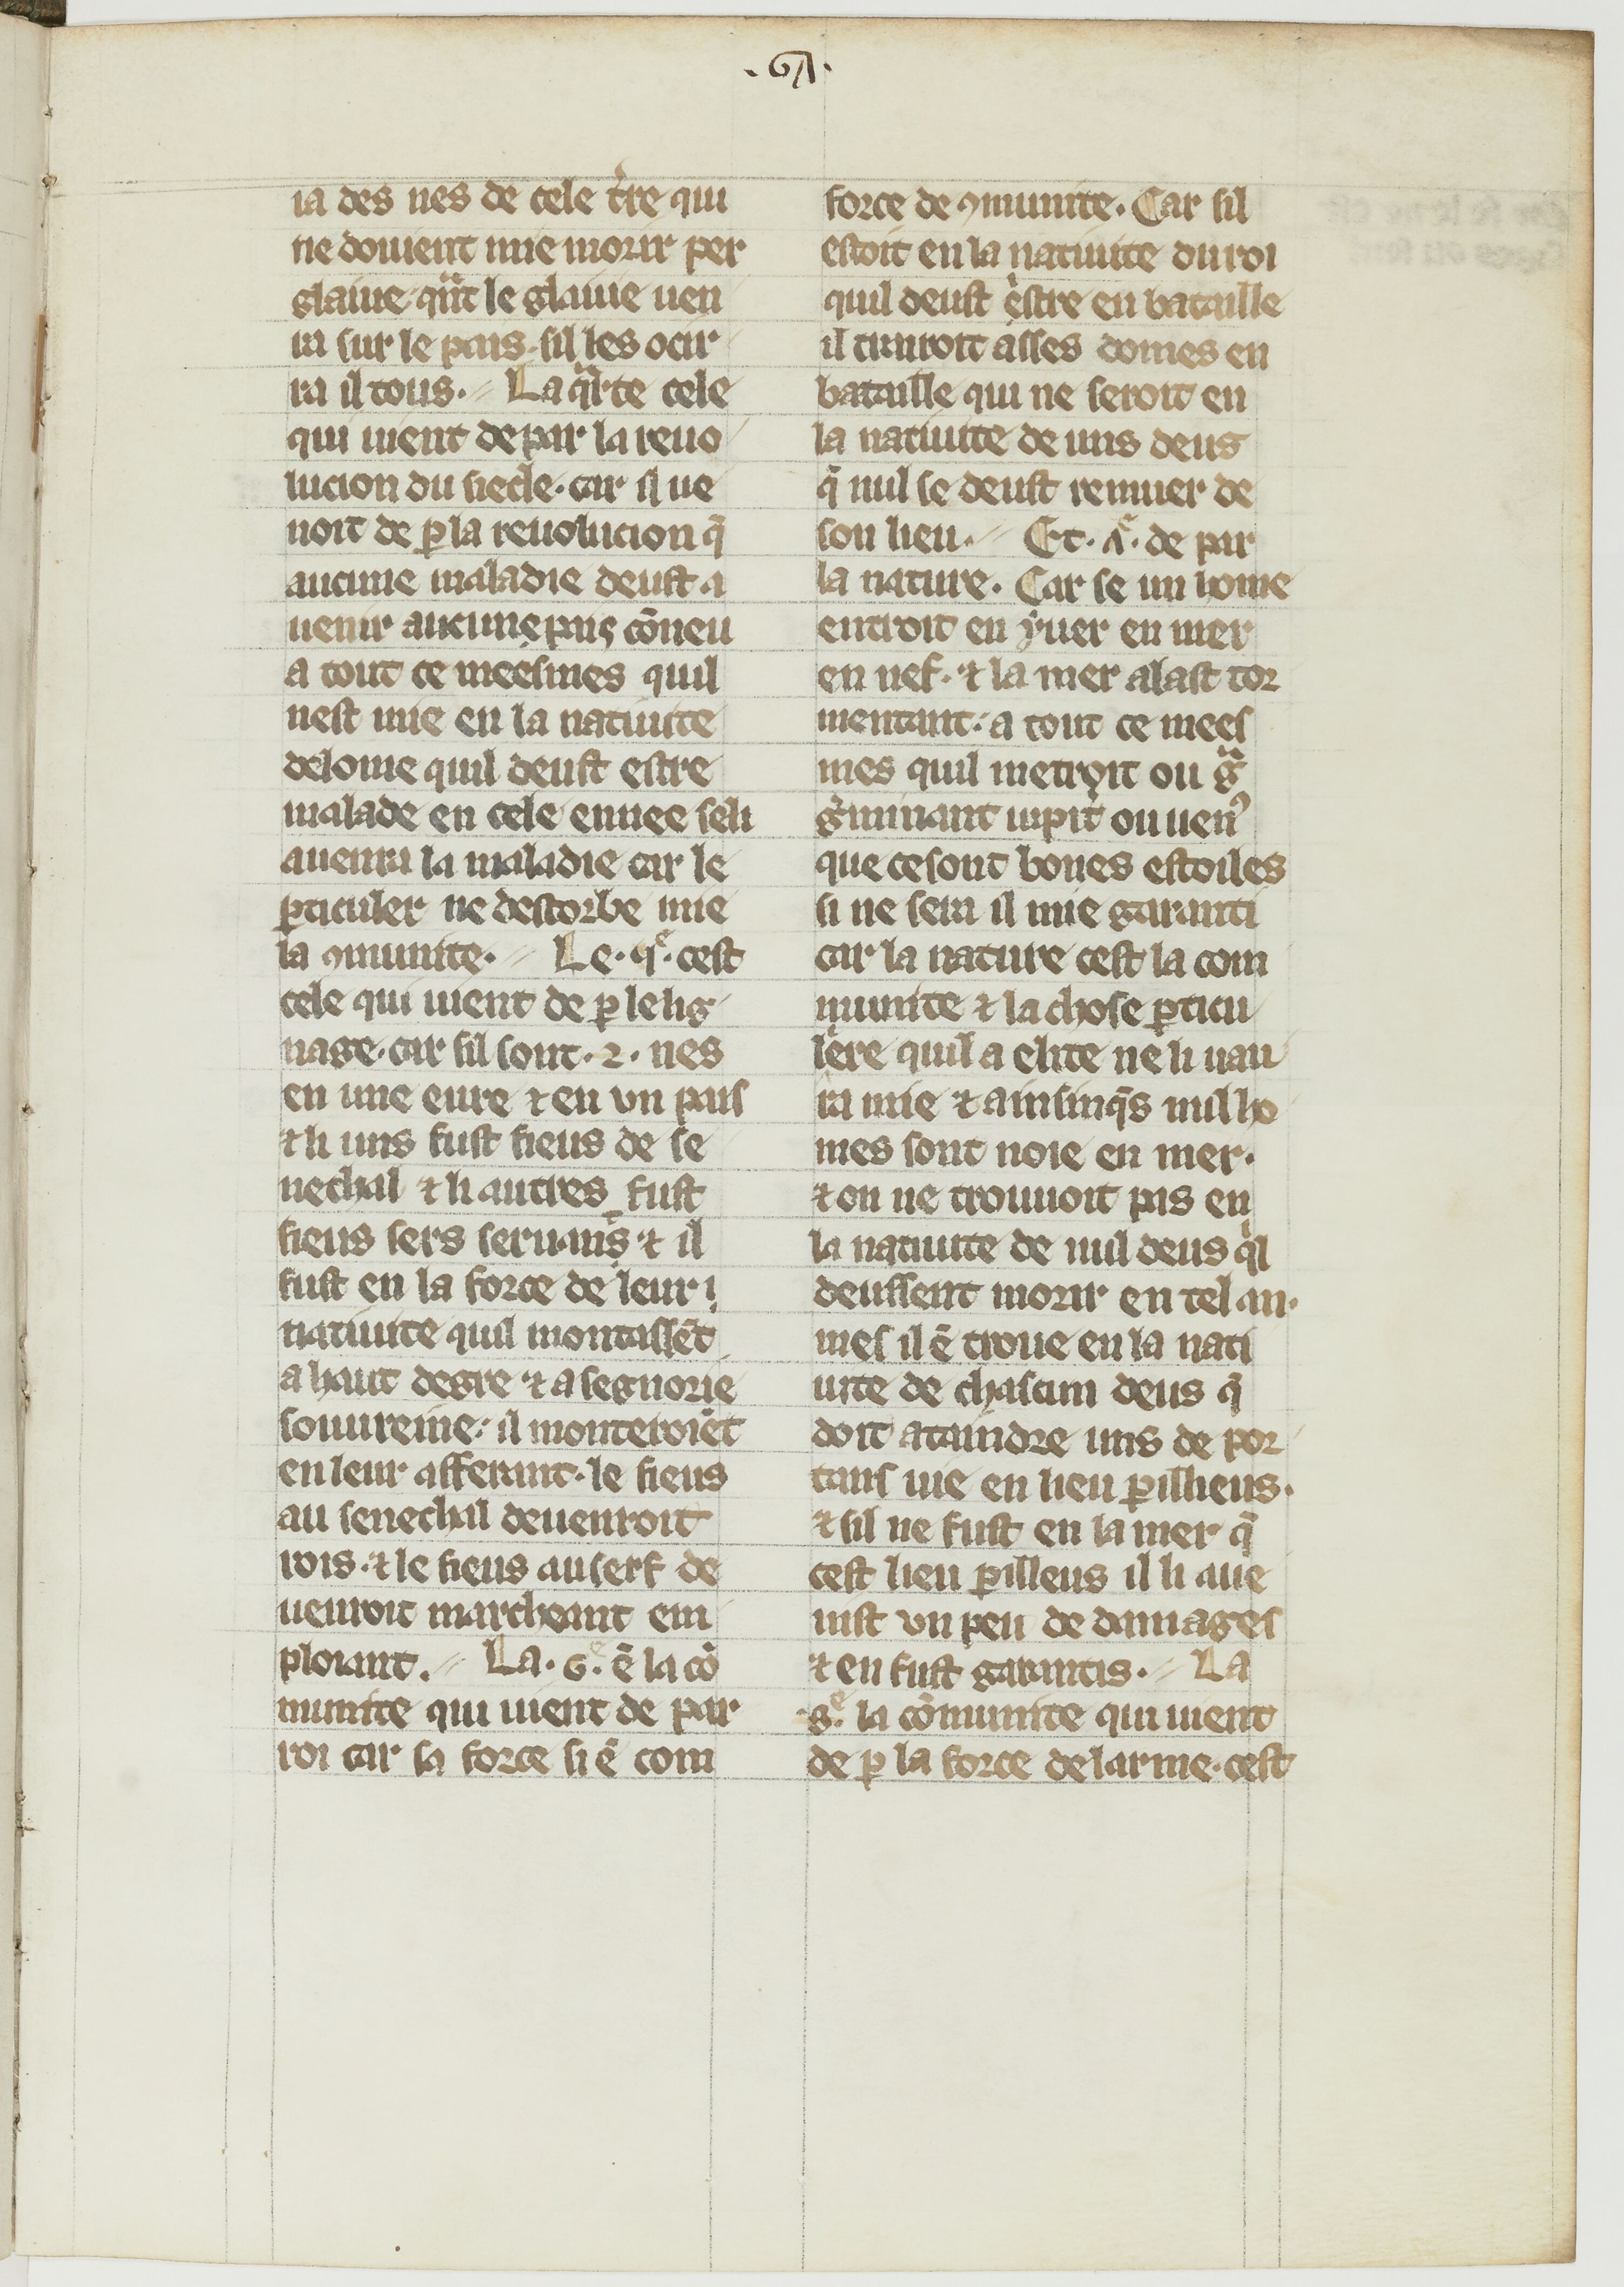 .67.
ra des nes de cele t̾re qui
ne doiuent mie morir per
glaiue. qᷓnt le glaiue uen
ra sur le pais. sil les ocir
ra il tous. Laqᷓrte cele
qui uient depar la reuo
lucion du siecle. car sil ue
noit de ꝑ la reuolucion q̄
aucune maladie deust a
uenir aucune pais cōneu
a tout ce meesmes quil
nest mie en la natiuite
delome quil deust estre
malade en cele ennee seli
auenra la maladie car le
ꝑticuler ne destorbe mie
la ꝯmunite. Le .qͤ. cest
cele qui uient de ꝑ le lig
nage. car sil sont .2. nes
en une eure ⁊ en vn pais
⁊ li uns fust fieus de se
nechal ⁊ li autres fust
fieus sers seruans ⁊ il
fust en la force de leur
natiuite quil montassēt
a haut degre ⁊ a segnorie
souureine. il monteroiēt
en leur afferant. le fieus
au senechal deuenroit
rois. ⁊ le fieus au serf de
uenroit marcheant em
plorant. La .6ͤ. ē la cō
munite qui uient de par
roi car sa force si ē com
force de ꝯmunite. Car sil
estoit en la natiuite du roi
quil deust estre en bataille
il trairoit asses domes en
bataille qui ne seroit en
la natiuite de uns deus
q̄ nul se deust remuer de
son lieu. Et .ꝟͤ. de par
la nature. Car se un home
entroit en yuer en mer
en nef. ⁊ la mer alast tor
mentant. a tout ce mees
mes quil metroit ou gᷓ
g̾minant iupit̾ ou uenꝰ
que ce sont bones estoiles
si ne sera il mie garanti
car la nature cest la com
munite ⁊ la chose ꝑticu
lere quil a elite ne li uau
ra mie ⁊ ainsinq̄s mil ho
mes sont noie en mer.
⁊ on ne trouuoit pas en
la natiuite de nul deus qͥl
deussent morir en tel an.
mes il ē troue en la nati
uite de chascun deus q̄
doit ataindre uns de por
tans uie en lieu ꝑillieus.
⁊ sil ne fust en la mer q̄
cest lieu ꝑilleus il li aue
nist vn peu de damages
⁊ en fust garantis. La
.8ͤ. la cōmunite qui uient
de ꝑ la force delarme. cest